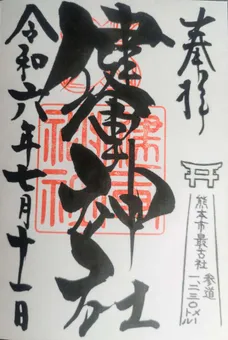 奉拝
熊本市最古社
参道
一、二三〇メートル
健軍神社
健軍
神社
令和六年七月十一日